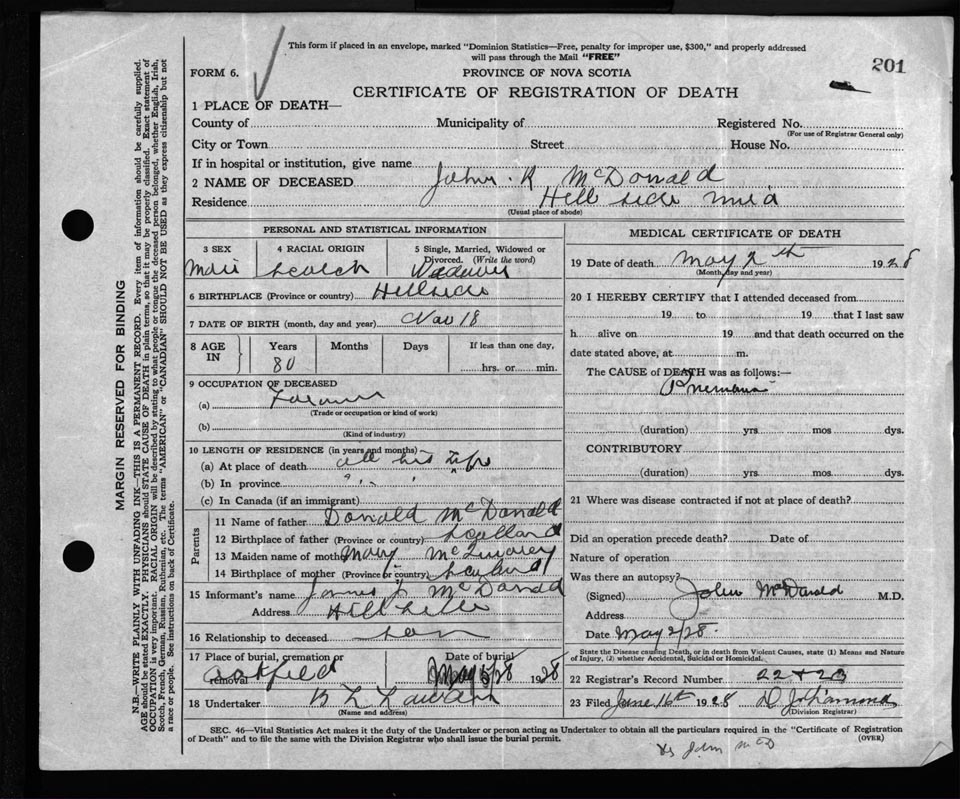 This form if placed in an envelope, marked "Dominion Statistics—Free, penalty for improper use, $300," and properly addressed
will pass through the Mail "FREE"
201
FORM 6.
PROVINCE OF NOVA SCOTIA
CERTIFICATE OF REGISTRATION OF DEATH
1 PLACE OF DEATH—
County of Municipality of Registered No.
(For use of Registrar General only)
City or Town Street House No.
If in hospital or institution, give name
2 NAME OF DECEASED John . R McDonald
Residence Hill side
(Usual place of abode)
PERSONAL AND STATISTICAL INFORMATION
3 SEX 4 RACIAL ORIGIN 5 Single, Married, Widowed or
Divorced. (Write the word)
Scotch
6 BIRTHPLACE (Province or country) Hillside
7 DATE OF BIRTH (month, day and year) Nov 18
8 AGE IN Years Months Days If less than one day,
80 hrs. or min.
9 OCCUPATION OF DECEASED
(a) Farmer
(Trade or occupation or kind of work)
(b)
(Kind of industry)
10 LENGTH OF RESIDENCE (in years and months)
(a) At place of death all his life
(b) In province " "
(c) In Canada (if an immigrant)
Parents
11 Name of father Donald McDonald
12 Birthplace of father (Province or country) Scotland
13 Maiden name of mother Mary
14 Birthplace of mother (Province or country)
15 Informant's name James J McDonald
Address
16 Relationship to deceased son
17 Place of burial, cremation or Date of burial
removal May 5/28 1928
18 Undertaker
(Name and address)
MEDICAL CERTIFICATE OF DEATH
19 Date of death May 2th 1928
(Month, day and year)
20 I HEREBY CERTIFY that I attended deceased from
19 to 19 that I last saw
h alive on 19 and that death occurred on the
date stated above, at m.
The CAUSE of DEATH was as follows:—
(duration) yrs. mos. dys.
CONTRIBUTORY
(duration) yrs. mos. dys.
21 Where was disease contracted if not at place of death?
Did an operation precede death? Date of
Nature of operation
Was there an autopsy?
(Signed) John McDonald M.D.
Address
Date May 2/28.
State the Disease causing Death, or in death from Violent Causes, state (1) Means and Nature
of Injury, (2) whether Accidental, Suicidal or Homicidal.
22 Registrar's Record Number 22 + 23
23 Filed June 16th 1928
(Division Registrar)
SEC. 46—Vital Statistics Act makes it the duty of the Undertaker or person acting as Undertaker to obtain all the particulars required in the "Certificate of Registration
of Death" and to file the same with the Division Registrar who shall issue the burial permit.
(OVER)
John McD
MARGIN RESERVED FOR BINDING
N.B.—WRITE PLAINLY WITH UNFADING INK—THIS IS A PERMANENT RECORD. Every item of information should be carefully supplied.
AGE should be stated EXACTLY. PHYSICIANS should STATE CAUSE OF DEATH in plain terms, so that it may be properly classified. Exact statement of
OCCUPATION is very important. RACIAL ORIGIN will be described by stating to what people or tongue the deceased person belonged, whether English, Irish,
Scotch, French, German, Russian, Ruthenian, etc. The terms "AMERICAN" or "CANADIAN" SHOULD NOT BE USED as they express citizenship but not
a race or people. See instructions on back of Certificate.